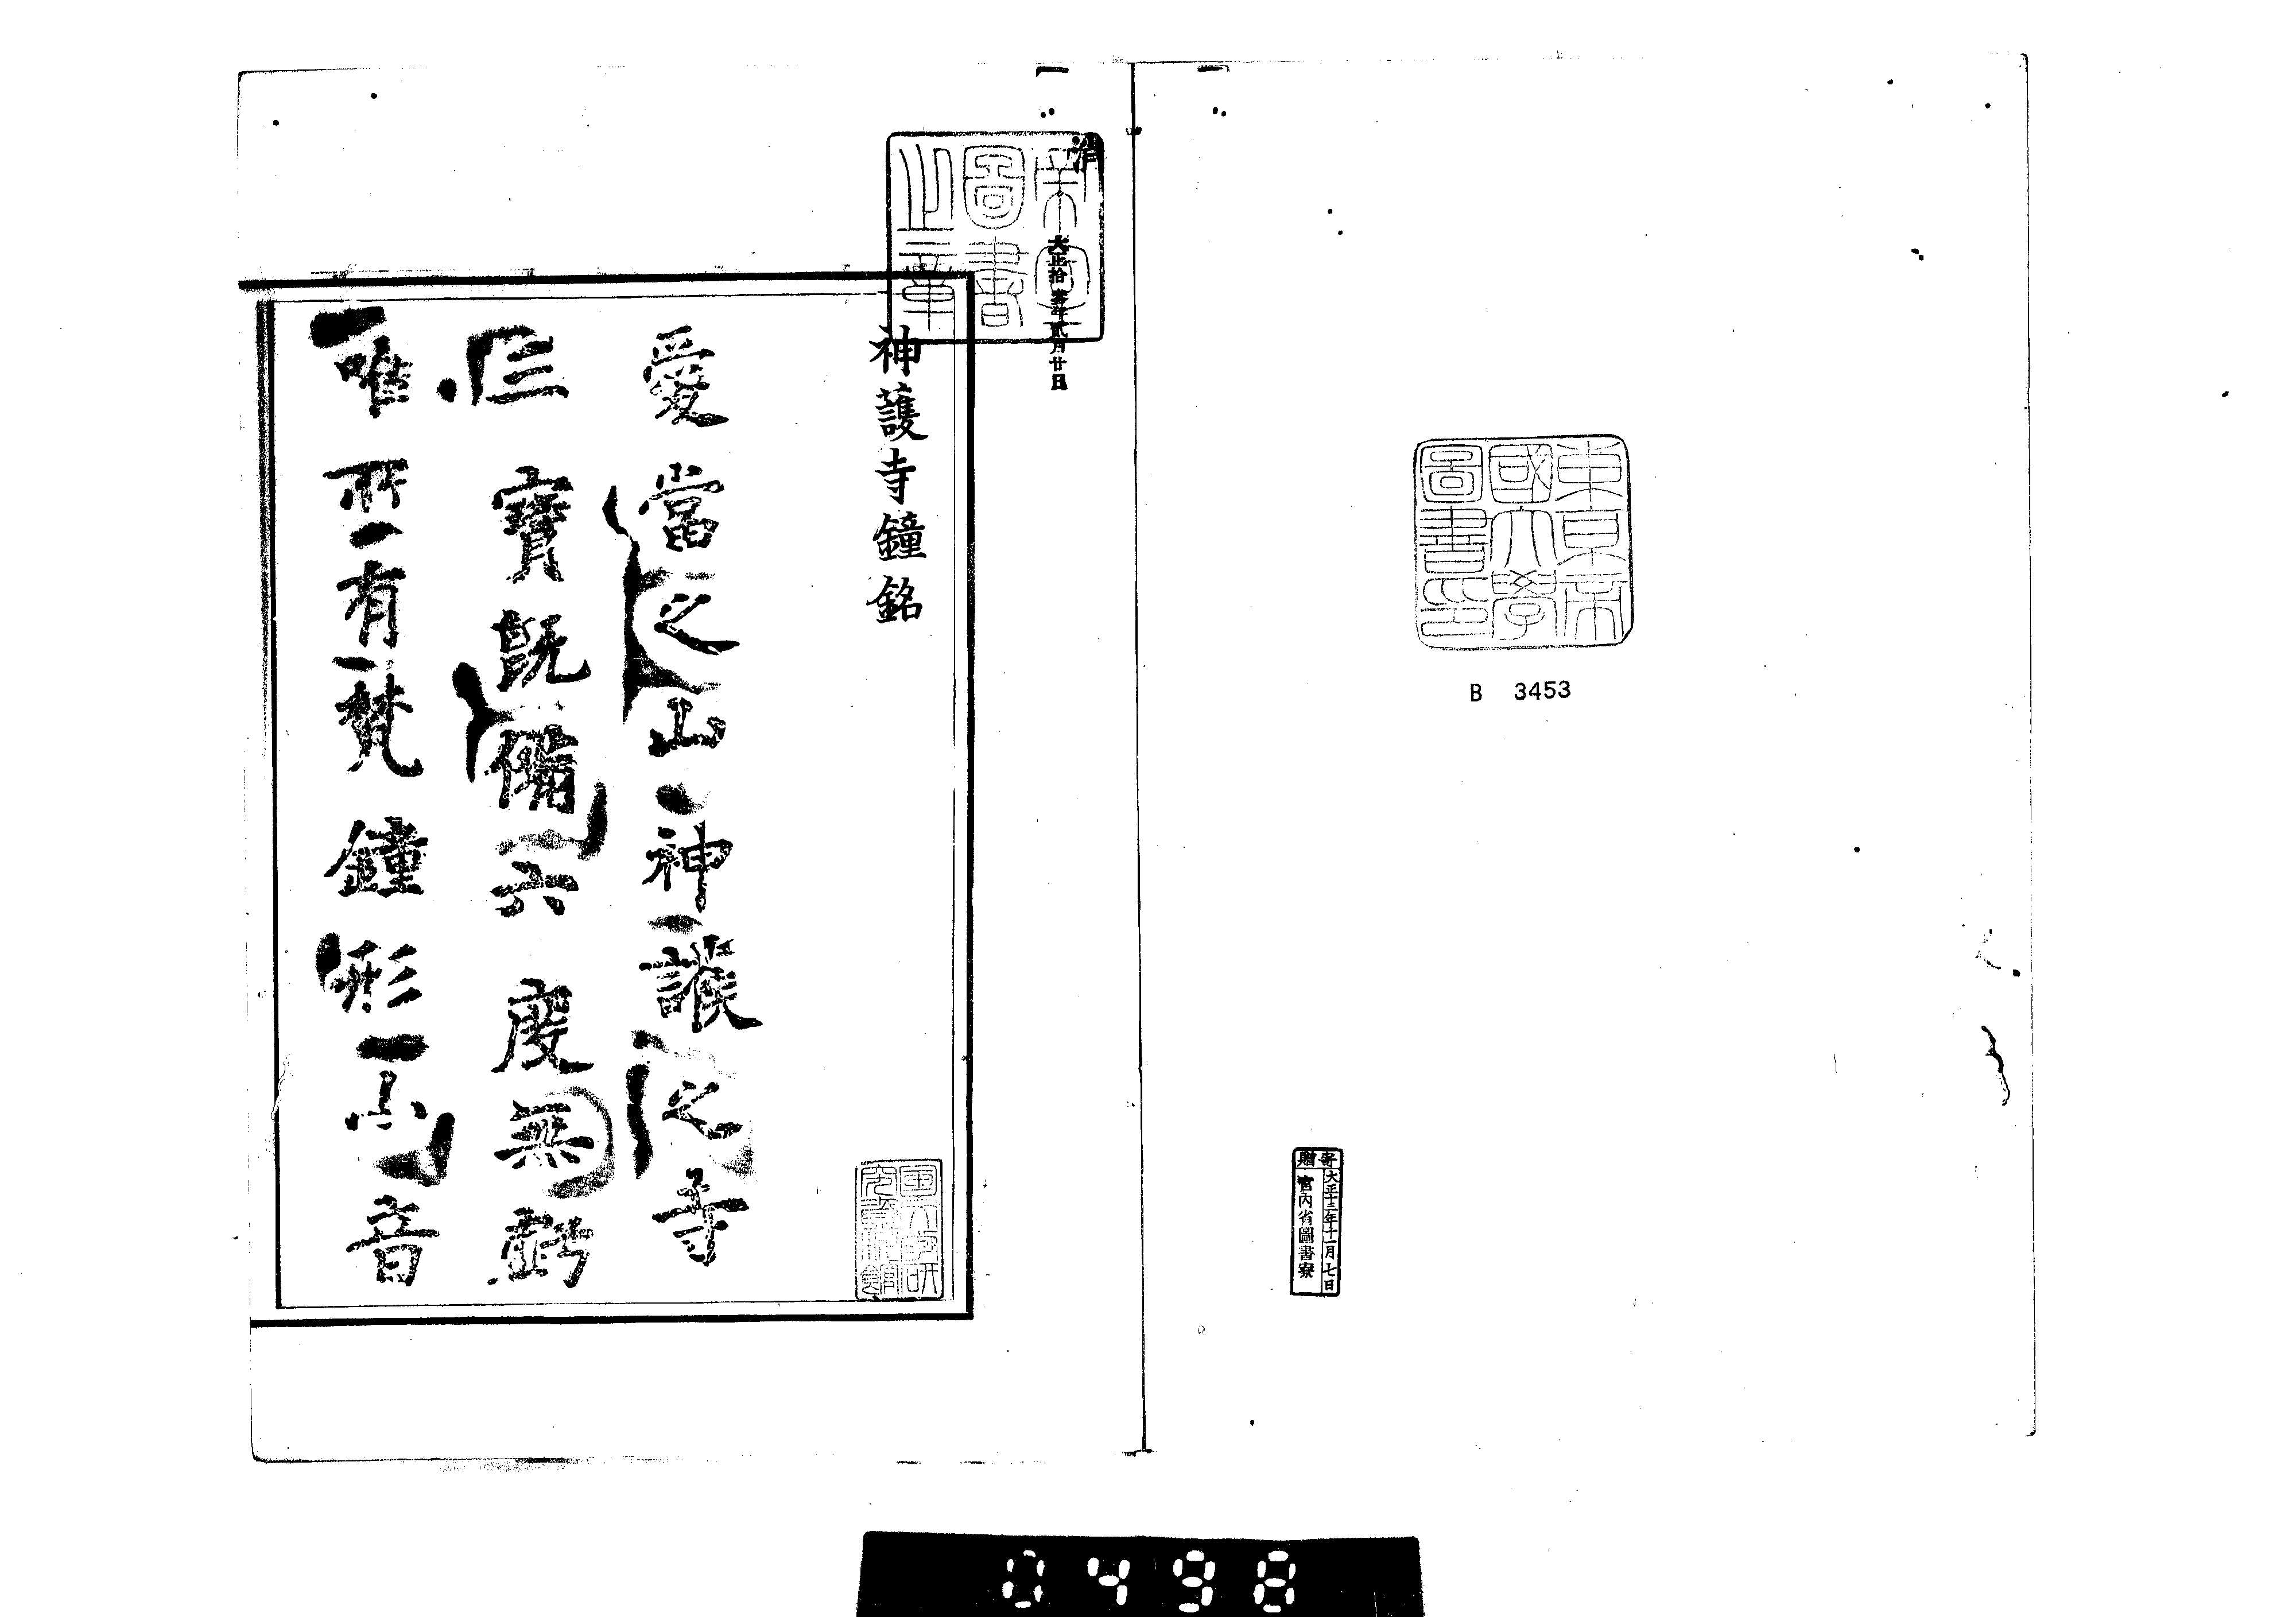 東京帝
國大學
圖書印
B 3453
寄贈
大正十三年十一月七日
宮内省圖書寮
帝室
圖書
之章
消
大正拾參年貳月廿日
神護寺鐘銘
國文學研
究資料館
愛當之山神護之寺
三寶既備六度無虧
唯所有梵鐘形小音
0498